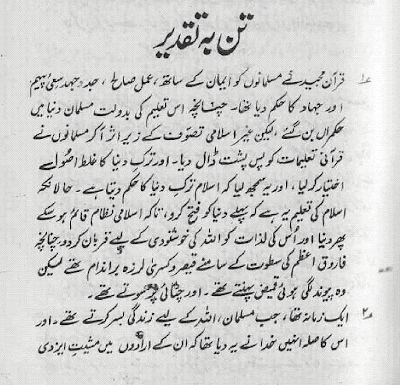 تن بہ تقدیر
۱۔ قرآن مجید نے مسلمانوں کو ایمان کے ساتھ، عمل صالح، جدوجہد سعیٔ پیہم
اور جہاد کا حکم دیا تھا۔ چنانچہ اس تعلیم کی بدولت مسلمان دنیا میں
حکمراں بن گئے، لیکن غیر اسلامی تصوف کے زیر اثر آکر مسلمانوں نے
قرآنی تعلیمات کو پس پشت ڈال دیا۔ اور ترک دنیا کا غلط اصول
اختیار کر لیا، اور یہ سمجھ لیا کہ اسلام ترک دنیا کا حکم دیتا ہے۔ حالانکہ
اسلام کی تعلیم یہ ہے کہ پہلے دنیا کو فتح کرو، تاکہ اسلامی نظام قائم ہو سکے
پھر دنیا اور اُس کی لذات کو اللہ کی خوشنودی کے لیے قربان کردو چنانچہ
فاروق اعظم کی سطوت کے سامنے قیصر و کسریٰ لرزہ براندام تھے لیکن
وہ پیوند لگی ہوئی قمیض پہنتے تھے۔ اور چٹائی پر سوتے تھے۔
۲۔ ایک زمانہ تھا، جب مسلمان، اللہ کے لیے زندگی بسر کرتے تھے۔ اور
اس کا صلہ انہیں خدا نے یہ دیا تھا کہ ان کے ارادوں میں مشیت ایزدی